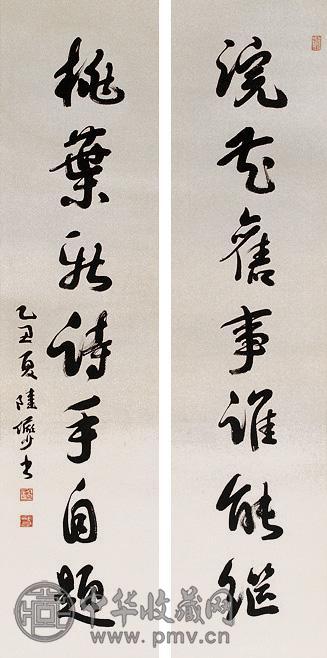 浣花舊事誰能繼
桃葉新詩手自題
乙丑夏陸儼少書
中华收藏网
www.pmv.cn